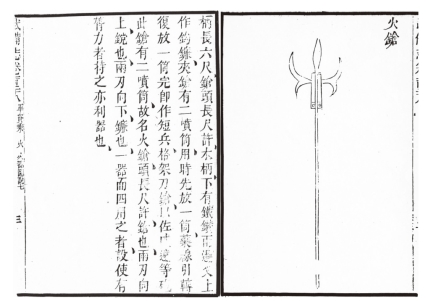 火鎗
柄長六尺鎗頭長尺許木柄下有鐵鑽兩邊叉上
作鈎鐮夾鎗有二噴筒用時先放一筒藥線引轉
復放一筒完即作短兵格架刀鎗以佐
此鎗有二噴筒故名火鎗頭長尺許鎗也兩刃向
上鎲也兩刃向下鐮也一器而四用之者設使有
膂力者持之亦利器也
三